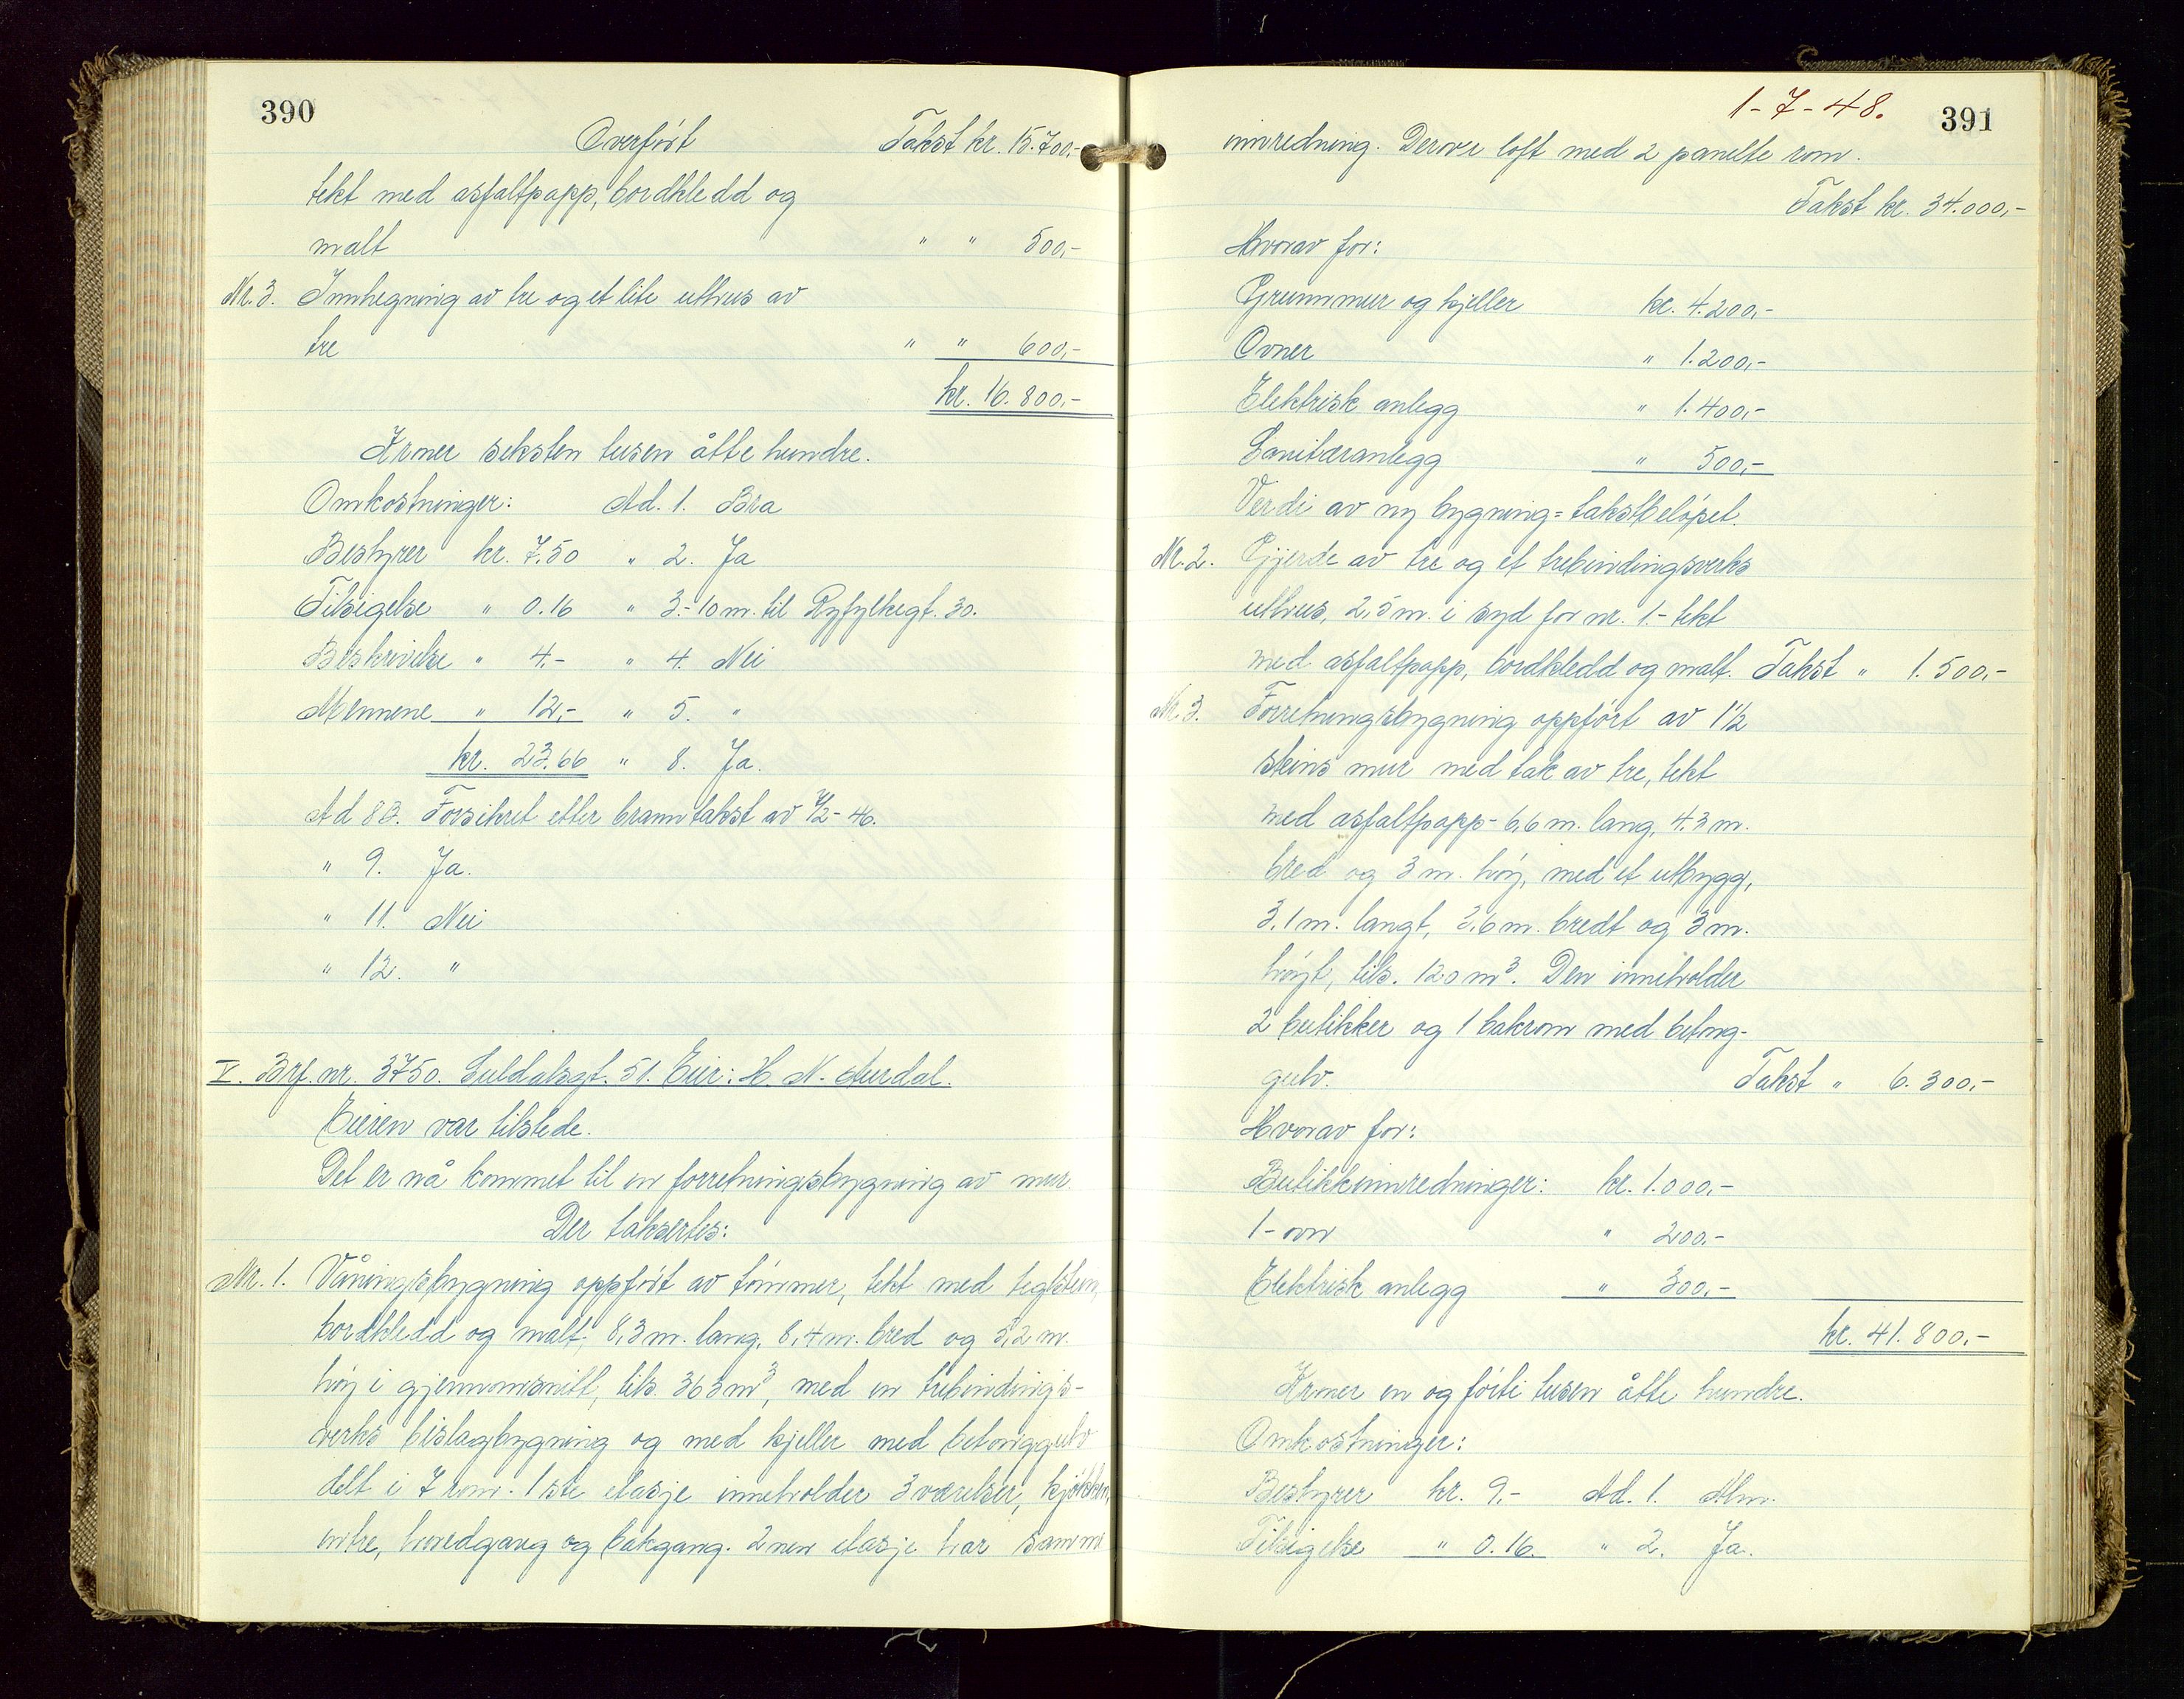 390
Overført Takst kr. 15.700,-
tekt med asfaltpapp, bordkledd og
malt " " 500,-
Nr. 3. Innhegning av tre og et lite uthus av
tre " " 600,-
kr. 16.800,-
Kroner seksten tusen åtte hundre.
Omkostninger: Ad. 1. Bra
Bestyrer kr. 7.50 " 2. Ja
Tilsigelse " 0.16 " 3.- 10 m. til Ryfylkegt. 30.
Beskrivelse " 4.- " 4. Nei
Mennene " 12,- " 5. "
kr. 23.66 " 8. Ja.
Ad 8B. Forsikret etter branntakst av -46.
" 9. Ja.
" 11. Nei
" 12. "
V. Brf. nr. 3750. Suldalsgt. 51. Eier: H. N. Aurdal.
Eieren var tilstede.
Det er nå kommet til en forretningsbygning av mur.
Der taksertes:
Nr. 1. Våningsbygning oppført av tømmer, tekt med teglstein,
bordkledd og malt, 8,3 m. lang, 8,4 m. bred og 5,2 m.
høy i gjennomsnitt, tils. 363 m³, med en trebindings-
verks bislagbygning og med kjeller med betonggulv
delt i 7 rom. 1ste etasje inneholder 3 værelser, kjøkken,
entre, hovedgang og bakgang. 2nen etasje har samme
1-7-48. 391
innredning. Derover loft med 2 panelte rom.
Takst kr. 34.000,-
Hvorav for:
Grunnmur og kjeller kr. 4.200,-
Ovner " 1.200,-
Elektrisk anlegg " 1.400,-
Sanitæranlegg " 500,-
Verdi av ny bygning = takstbeløpet.
Nr. 2. Gjerde av tre og et trebindingsverks
uthus, 2,5 m. i syd for nr. 1.- tekt
med asfaltpapp, bordkledd og malt. Takst " 1.500,-
Nr. 3. Forretningsbygning oppført av 1½
steins mur med tak av tre, tekt
med asfaltpapp - 6,6 m. lang, 4.3 m.
bred og 3 m. høy, med et utbygg,
3,1 m. langt, 3,6 m. bredt og 3 m.
høyt, tils. 120 m³. Den inneholder
2 butikker og 1 bakrom med betong-
gulv. Takst " 6.300,-
Hvorav for:
Butikkinnredninger: kr. 1.000,-
1- ovn " 200.-
Elektrisk anlegg " 300,-
kr. 41.800,-
Kroner en og førti tusen åtte hundre.
Omkostninger:
Bestyrer kr. 9,- Ad. 1. Alm.
Tilsigelse " 0.16. " 2. Ja.